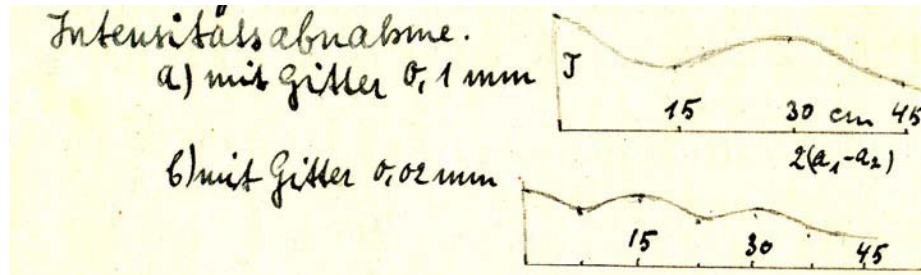 Intensitätsabnahme.
a) mit Gitter 0,1 mm
J
15 30 cm 45
2(a₁-a₂)
b) mit Gitter 0,02 mm
15 30 45